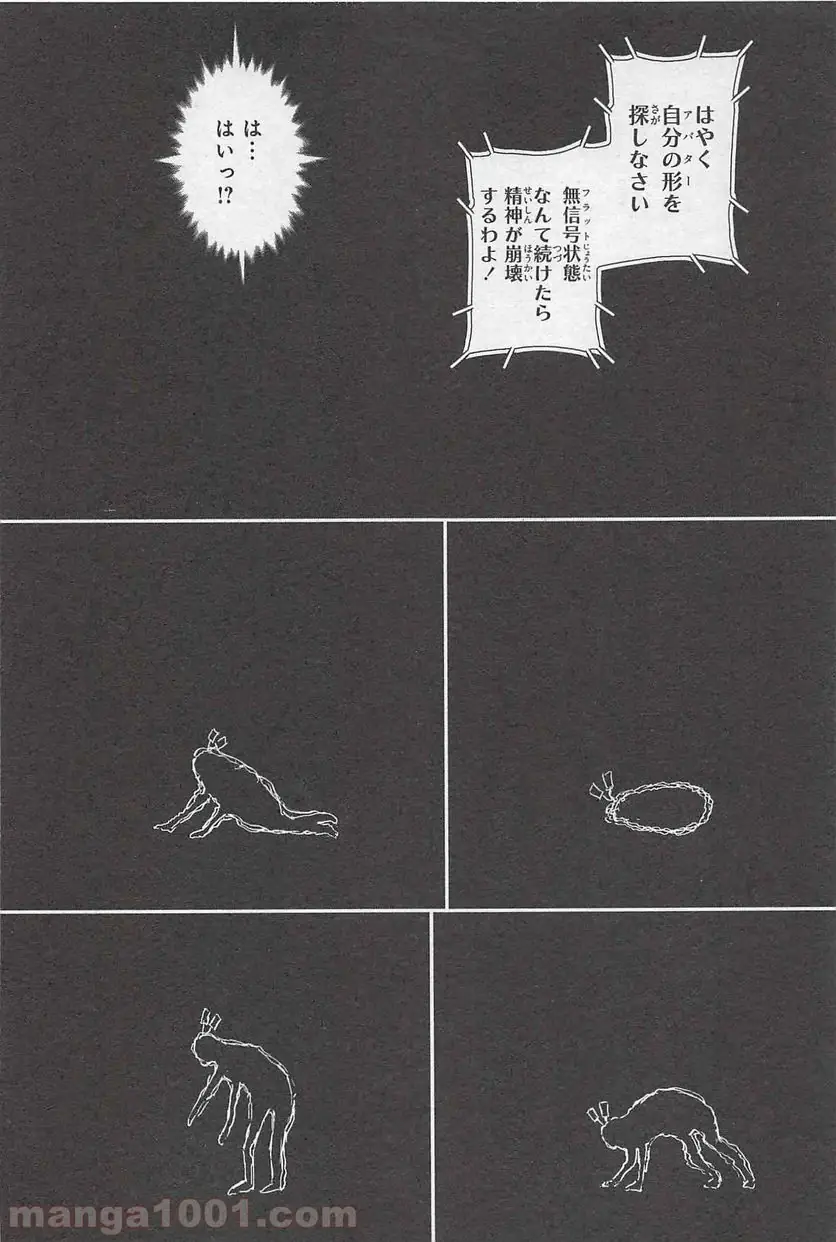 はやく
自分の形を
アバター
探しなさい
さが
無信号状態
フラットじょうたい
なんて続けたら
つづ
精神が崩壊
せいしん ほうかい
するわよ!
は…
はいっ!?
manga1001.com